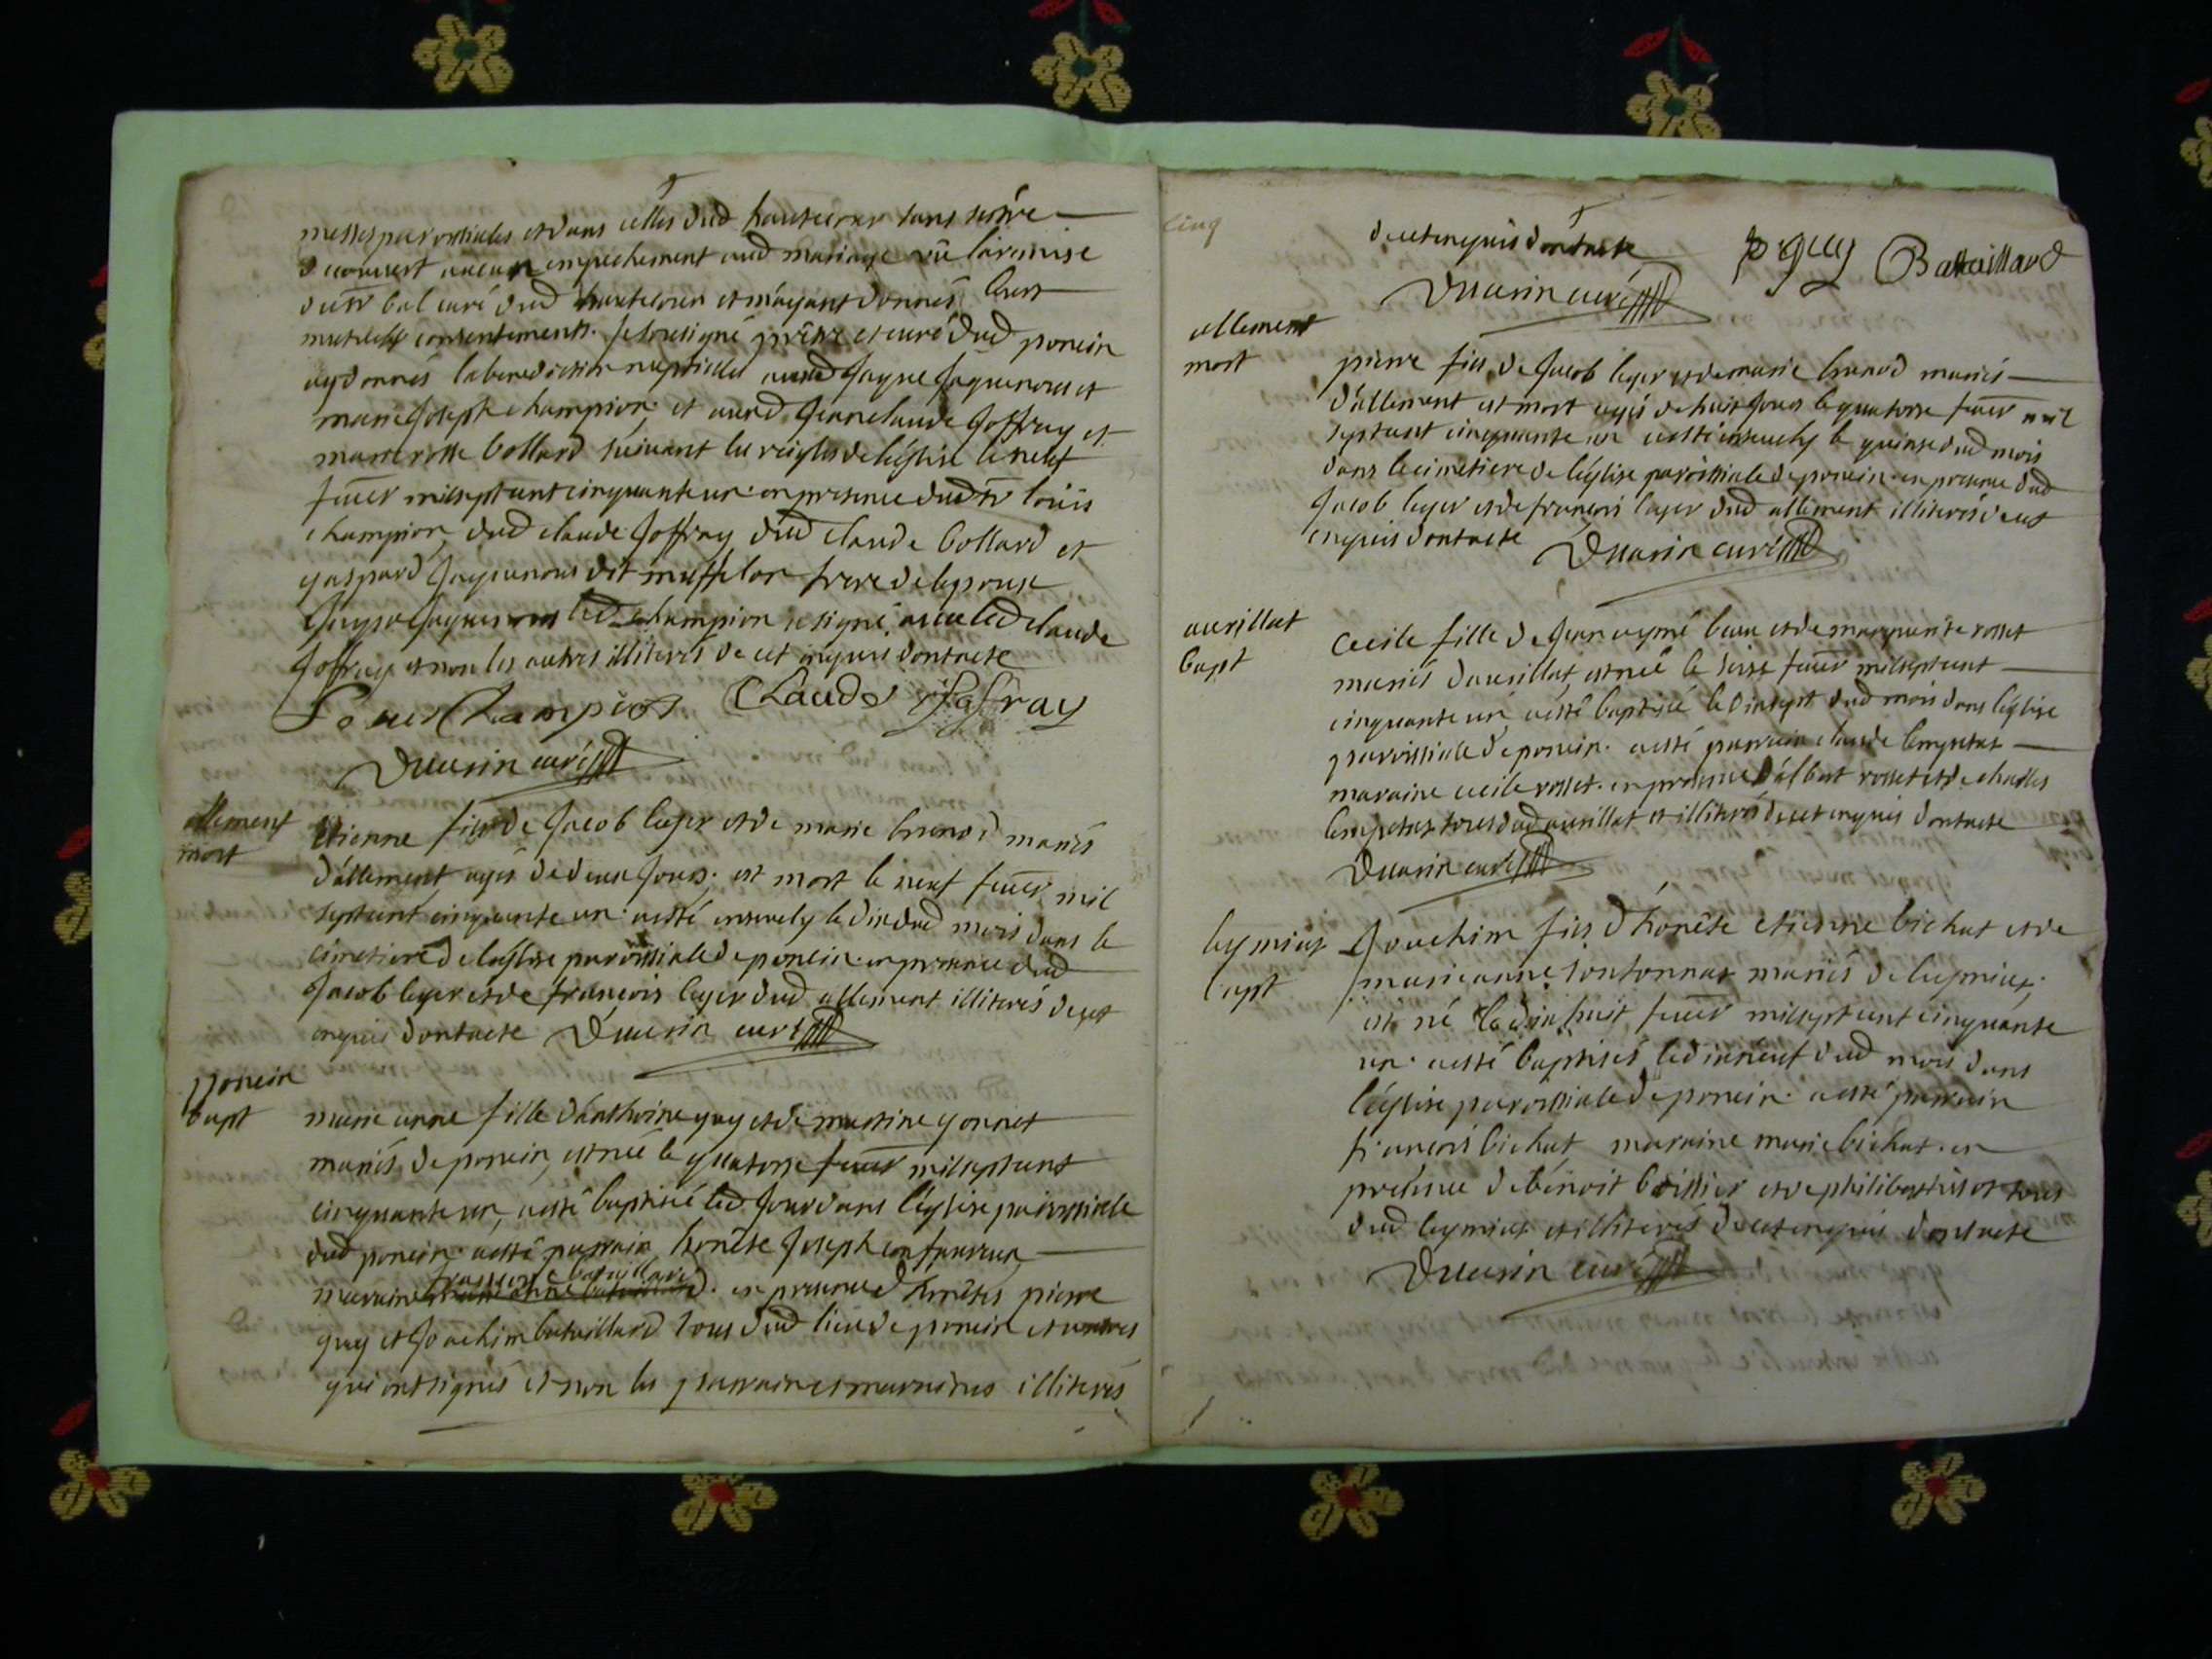 messes paroissiales et dans celles dud hautecour sans s'être
decouvert aucun empechement aud mariage vû la remise
du sr bal curé dud hautecour et m'ayant donnés leurs
mutuels consentements. Je soussigné prêtre et curé dud poncin
ay donnés la benediction nuptiale auxd Jayne Jaquenous et
marie Joseph champion et auxd Jean claude Joffray et
marie rose bollard suivant les reigles de l'église le neuf
fevrr mil sept cent cinquante un. en presence dud sr loüis
champion, dud claude Joffray dud claude bollard et
gaspard Jaquenous dit muffelor frere de l'epouse
led champion a signé avec led claude
Joffray et non les autres illiterés de cet enquis dont acte
Louis Champion Claude Joffray
Ducurin curé
allement
mort
Etienne fils de Jacob leger et de marie brunod mariés
d'allement agés de deux Jours; est mort le neuf fevrr mil
sept cent cinquante un. a esté ensevely le dix dud mois dans le
cimetiere de l'église paroissiale de poncin. en presence dud
Jacob leger et de françois leger dud allement illiterés de cet
enquis dont acte Ducurin curé
poncin
bapt
marie anne fille d'anthoine guy et de martine gonnet
mariés de poncin, est née le quatorse fevrr mil sept cent
cinquante un, a esté baptisée led Jour dans l'église paroissiale
dud poncin. a esté parrain honête Joseph confavreux
maraine françoise bataillard. en presence d'honêtes pierre
guy et Joachim bataillard tous dud lieu de poncin et autres
qui ont signés et non les parrain et marraines illiterés
cinq
de cet enquis dont acte p guy Bataillard
Ducurin curé
allement
mort
pierre fils de Jacob leger et de marie brunod mariés
d'allement est mort agés de huit Jours le quatorse fevrr mil
sept cent cinquante un a esté ensevely le quinse dud mois
dans le cimetiere de l'église paroissiale de poncin. en presence dud
Jacob leger et de françois leger dud allement illiterés de cet
enquis dont acte Ducurin curé
avrillat
bapt
Cecile fille de Jean aymé beau et de marguerite rosset
mariés d'avrillat, est née le seise fevrr mil sept cent
cinquante un a esté baptisée le dixsept dud mois dans l'église
paroissiale de poncin. a esté parrain claude
maraine cecile rosset. en presence d'albert rosset et de charles
tous dud avrillat et illiterés de cet enquis dont acte
Ducurin curé
leymiat
bapt
Joachim fils d'honête etienne bichat et de
marie anne tontonnat mariés de leymiat;
est né le dix huit fevrr mil sept cent cinquante
un. a esté baptisés le dixneuf dud mois dans
l'église paroissiale de poncin. a esté parrain
françois bichat maraine marie bichat. en
presence de benoit boissier et de philibert tous
dud leymiat et illiterés de cet enquis dont acte
Ducurin curé